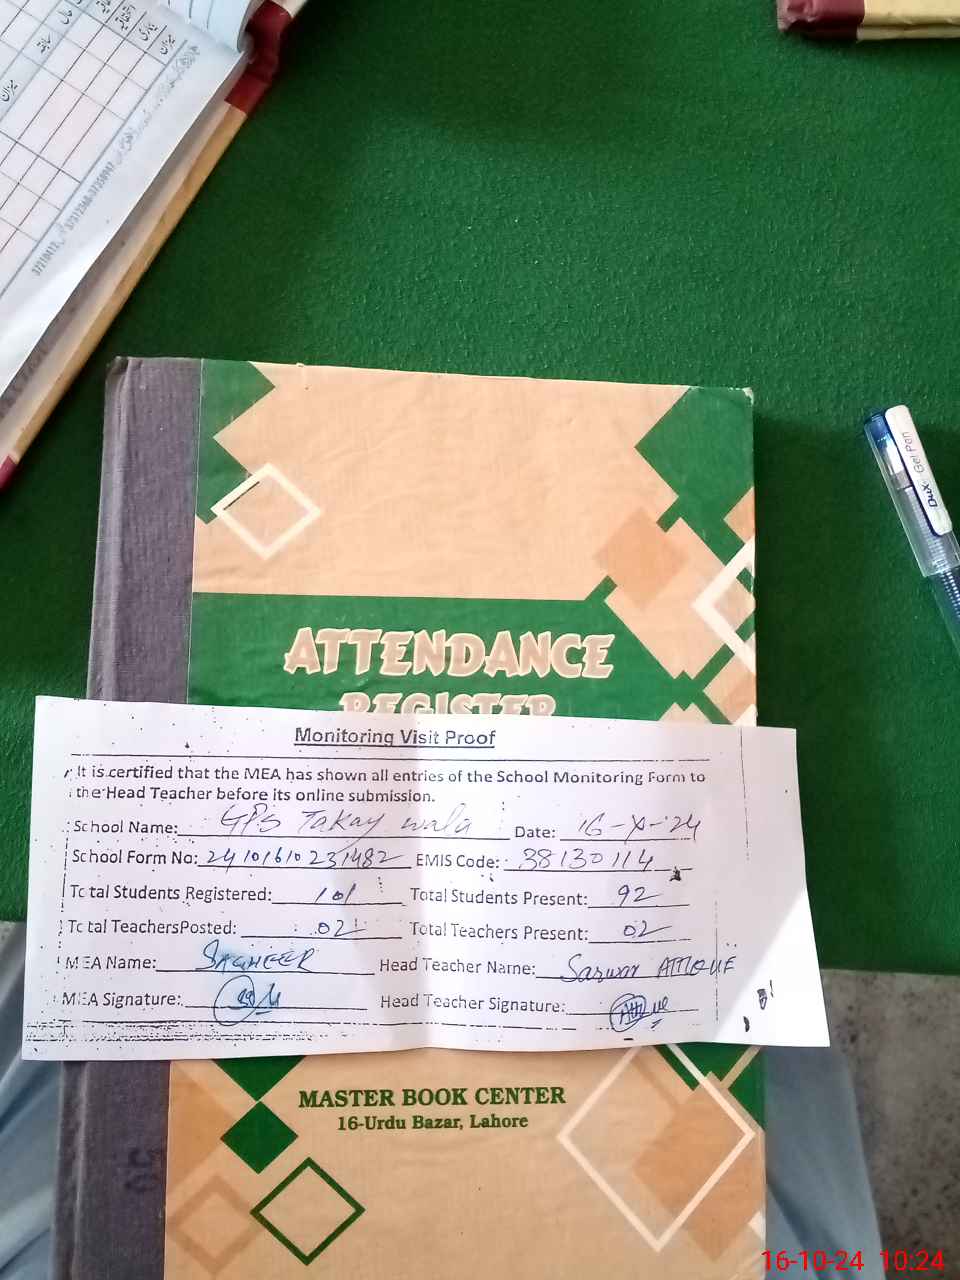 میزان
سابقہ
میزان
37210412، 37312368-37358947
Dux Gel Pen
ATTENDANCE
REGISTER
Monitoring Visit Proof
It is certified that the MEA has shown all entries of the School Monitoring Form to
the Head Teacher before its online submission.
School Name: GPS Takay wala Date: 16-X-24
School Form No: 24101610231482 EMIS Code: 38130114
Total Students Registered: 101 Total Students Present: 92
Total TeachersPosted: 02 Total Teachers Present: 02
MEA Name: SAGHEER Head Teacher Name: Sarwar ATTIQUE
MEA Signature: Head Teacher Signature:
MASTER BOOK CENTER
16-Urdu Bazar, Lahore
16-10-24 10:24